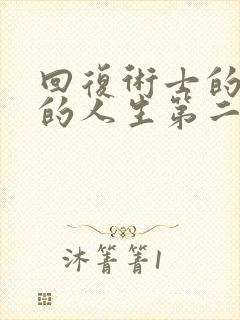 回復術士的
的人生第二
沐箐箐1